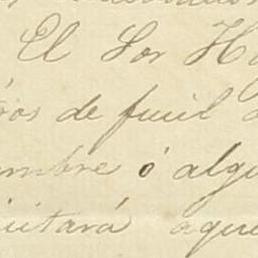 El Sor H
ros de fucil
mbre ó algu
citará aque